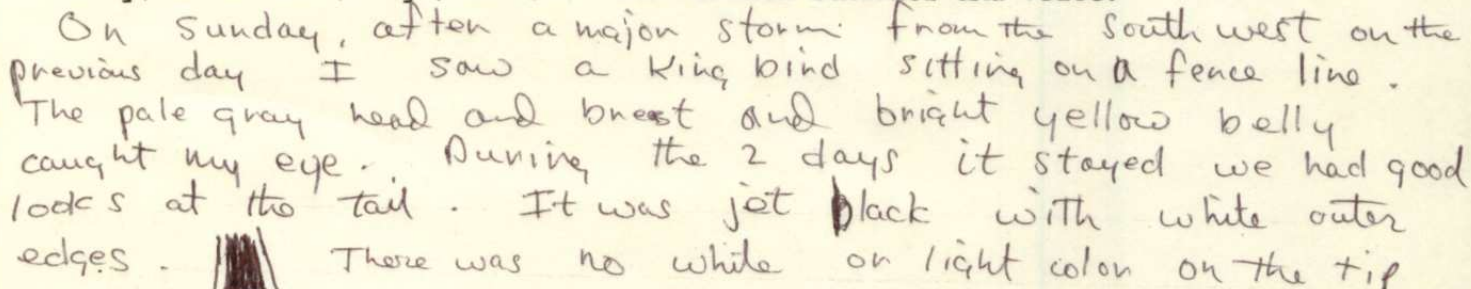 On Sunday, after a major storm from the south west on the
previous day I saw a King bird sitting on a fence line.
The pale gray head and breast and bright yellow belly
caught my eye. During the 2 days it stayed we had good
looks at the tail. It was jet black with white outer
edges. There was no white or light color on the tip